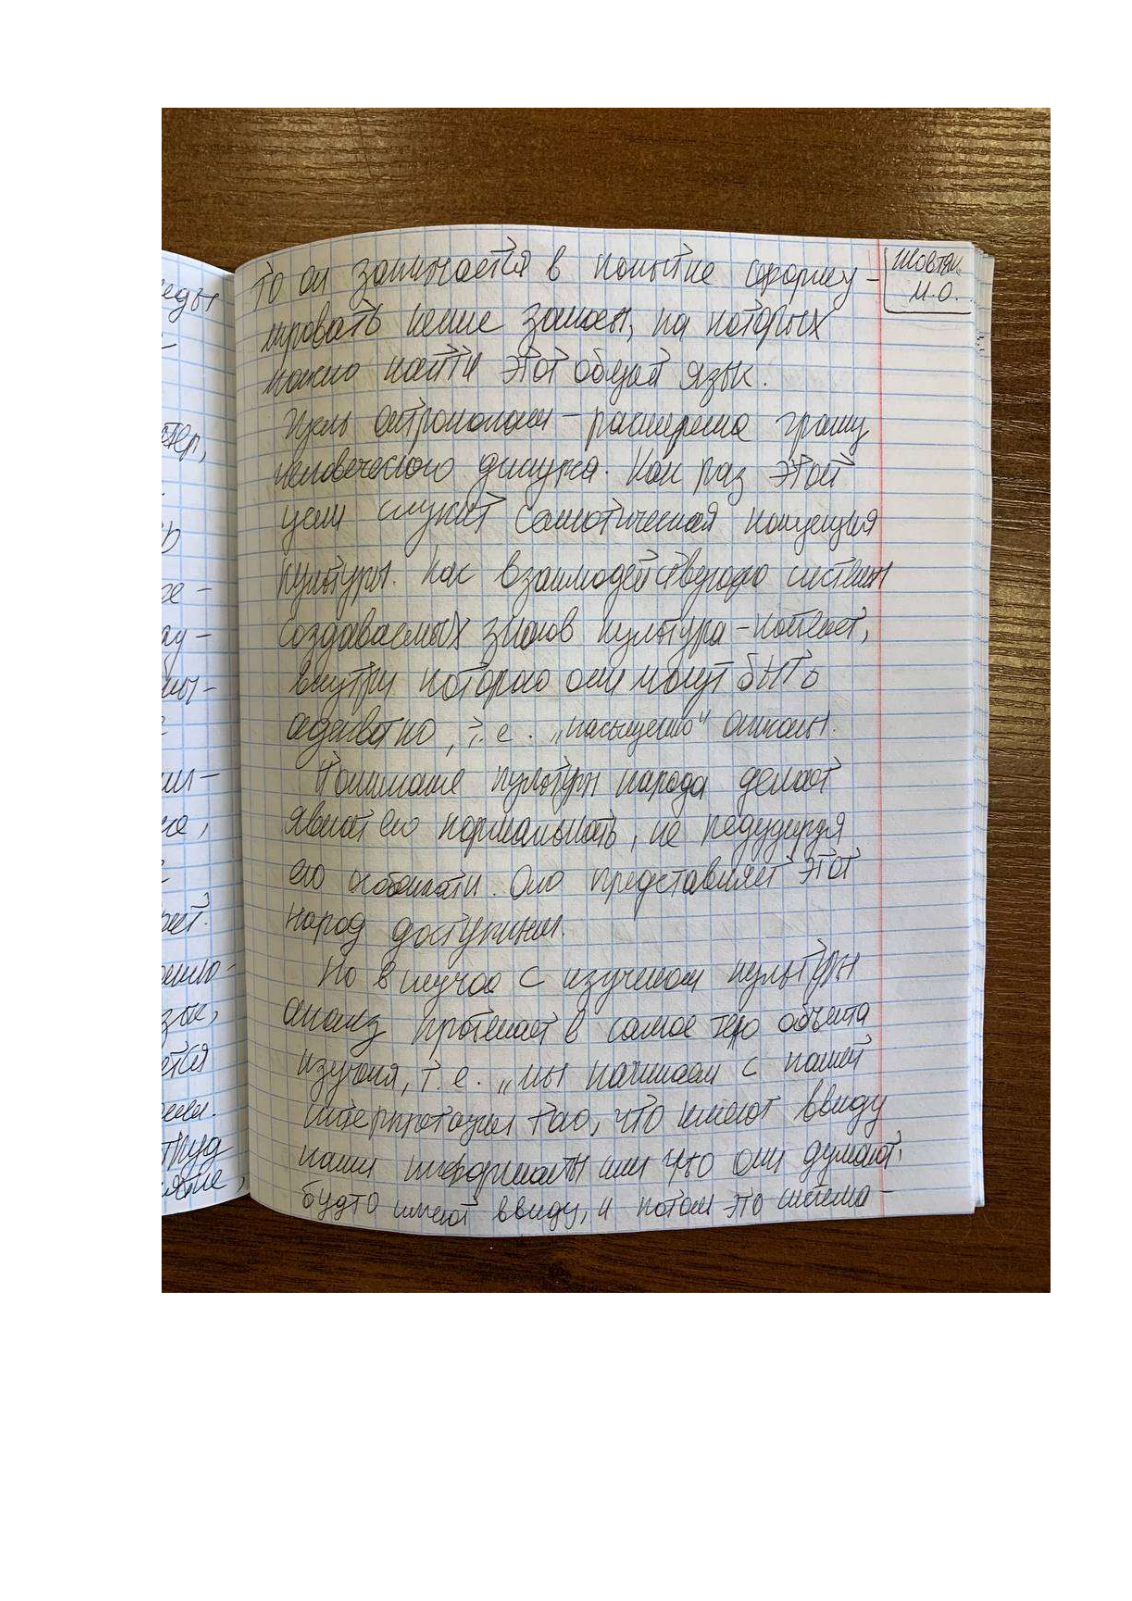 Шовтян.
М.О.
то он заключается в попытке сформу-
лировать некие законы, на которых
можно найти этот общий язык.
Цель антропологии – расширение границ
человеческого дискурса. Как раз этой
цели служит семиотическая концепция
культуры. Как взаимодействующие системы
создаваемых знаков культура – контекст,
внутри которого они могут быть
адекватно, т.е. „насыщенно" описаны.
Понимание культуры народа делает
его нормальность, не редуцируя
его особенности. Оно представляет этот
народ доступным.
Но в случае с изучением культуры
анализ протекает в самое тело объекта
изучения, т.е. „мы начинаем с нашей
интерпретации того, что имеют ввиду
наши информанты или что они думают,
будто имеют ввиду, и потом это система-